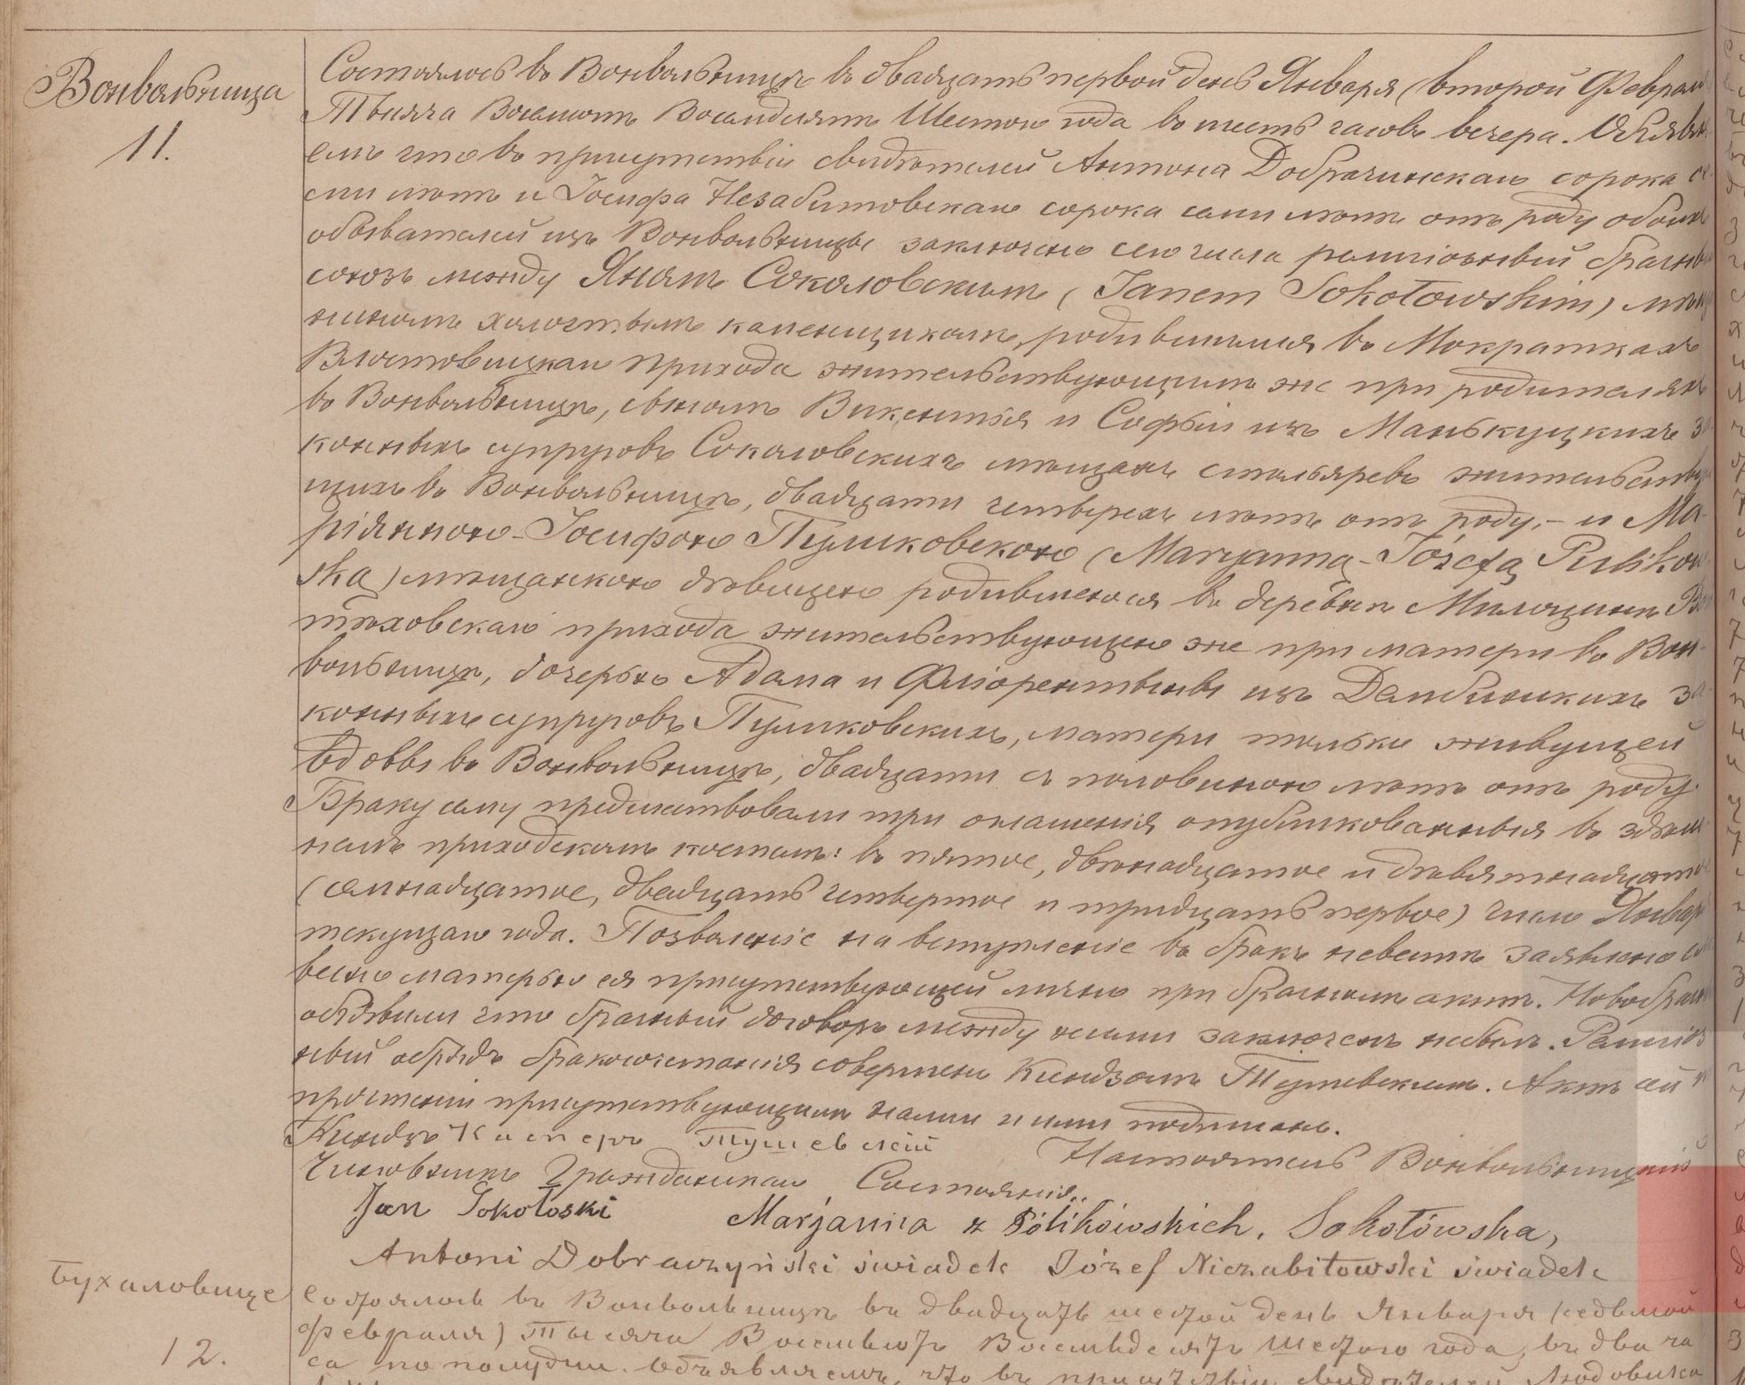 Вонвольница
11.
Состоялось въ Вонвольницѣ въ двадцать первой день Января (второй Феврал
Тысяча Восемьсотъ Восемдесятъ Шестого года въ шесть часовъ вечера. Объявля
емъ что въ присутствіи свидѣтелей Антона Добрачинскаго сорока
ми лѣтъ и Іосифа Незабитовскаго сорока семи лѣтъ отъ роду обоихъ
обывателей изъ Вонвольницы заключено сего числа религіозный брачный
союзъ между Яномъ Соколовскимъ (Janem Sokołowskim) мѣщ
ниномъ холостымъ каменщикомъ, родившимся въ Мократкахъ
Влостовицкаго прихода жительствующимъ же при родителяхъ
въ Вонвольницѣ, сыномъ Викентія и Софьи изъ Манькуцкихъ за
конныхъ супруговъ Соколовскихъ мѣщанъ столяревъ жительству
щихъ въ Вонвольницѣ, двадцати четверехъ лѣтъ отъ роду, - и Ма-
ріянною-Іосифою Пуликовскою (Maryanną-Józefą Pulikow
ską) мѣщанкою дѣвицею родившеюся въ деревнѣ Милоцинѣ
прихода жительствующею же при матери въ Вон-
вольницѣ, дочерью Адама и Флорентыны изъ Дамбинскихъ за
конныхъ супруговъ Пуликовскихъ, матери только живущей
вдовы въ Вонвольницѣ, двадцати съ половиною лѣтъ отъ роду.
Браку сему предшествовали три оглашенія опубликованныя въ здѣш
немъ приходскомъ костелѣ: въ пятое, двѣнадцатое и девятнадцатое
(семнадцатое, двадцать четвертое и тридцать первое) число Январ
текущаго года. Позволеніе на вступленіе въ бракъ невестѣ заявлено сло
весно матерью ея присутствующей лично при брачномъ актѣ. Новобрач
объявили что брачный договоръ между ними заключенъ небылъ. Религіоз
ный обрядъ бракосочетанія совершенъ Ксендзомъ Тушевскимъ. Актъ сей по
прочтеніи присутствующимъ нами и ими подписанъ.
Ксендзъ Касперъ Тушевскій Настоятель Вонвольницкій
Чиновникъ Гражданскаго Состоянія..
Jan Sokołoski Marjanna z Pólikówskich. Sokołówska,
Antoni Dobraczyński swiadek Józef Niezabitowski swiadek
Бухаловице
12.
Состоялось въ Вонвольницѣ въ двадцать шестой день Января (седьмой
Февраля) Тысяча Восемьсотъ Восемьдесятъ Шестого года, въ два ча
са по полудни. Объявляемъ, что въ присутствіи свидѣтелей Людовика